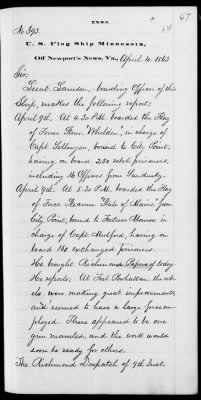 67
No. 393.
U. S. Flag Ship Minnesota,
Off Newport's News, Va., April 10, 1863
Sir:
Lieut. Lamson, boarding Officer of this
Ship, makes the following report:
April 9th. At 4.20 P.M. boarded the Flag
of Truce Steamer, in charge
of Capt. bound to City Point,
having on board 250 rebel prisoners,
including 16 Officers from Sandusky.
April 9th. At 5.20 P.M. boarded the Flag
of Truce Steamer "State of Maine" from
City Point, bound to Fortress Monroe in
charge of Capt. Mulford, having on
board 160 exchanged prisoners.
He brought Richmond Papers of today.
He reports, At Fort Powhatan, the reb-
els were making great improvements,
and seemed to have a large force em-
ployed. There appeared to be one
gun mounted, and the work would
soon be ready for others.
The Richmond Dispatch of 9th Inst.